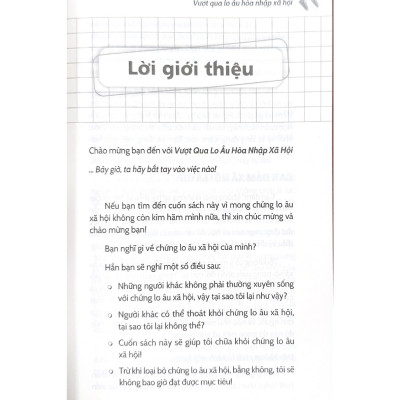 Vượt qua lo âu hòa nhập xã hội
Lời giới thiệu
Chào mừng bạn đến với Vượt Qua Lo Âu Hòa Nhập Xã Hội
... Bây giờ, ta hãy bắt tay vào việc nào!
Nếu bạn tìm đến cuốn sách này vì mong chứng lo âu
xã hội không còn kìm hãm mình nữa, thì xin chúc mừng và
chào mừng bạn!
Bạn nghĩ gì về chứng lo âu xã hội của mình?
Hẳn bạn sẽ nghĩ một số điều sau:
Những người khác không phải thường xuyên sống
với chứng lo âu xã hội, vậy tại sao tôi lại như vậy?
Người khác có thể thoát khỏi chứng lo âu xã hội,
tại sao tôi lại không thể?
Cuốn sách này sẽ giúp tôi chữa khỏi chứng lo âu
xã hội!
Trừ khi loại bỏ chứng lo âu xã hội, bằng không, tôi sẽ
không bao giờ đạt được mục tiêu!